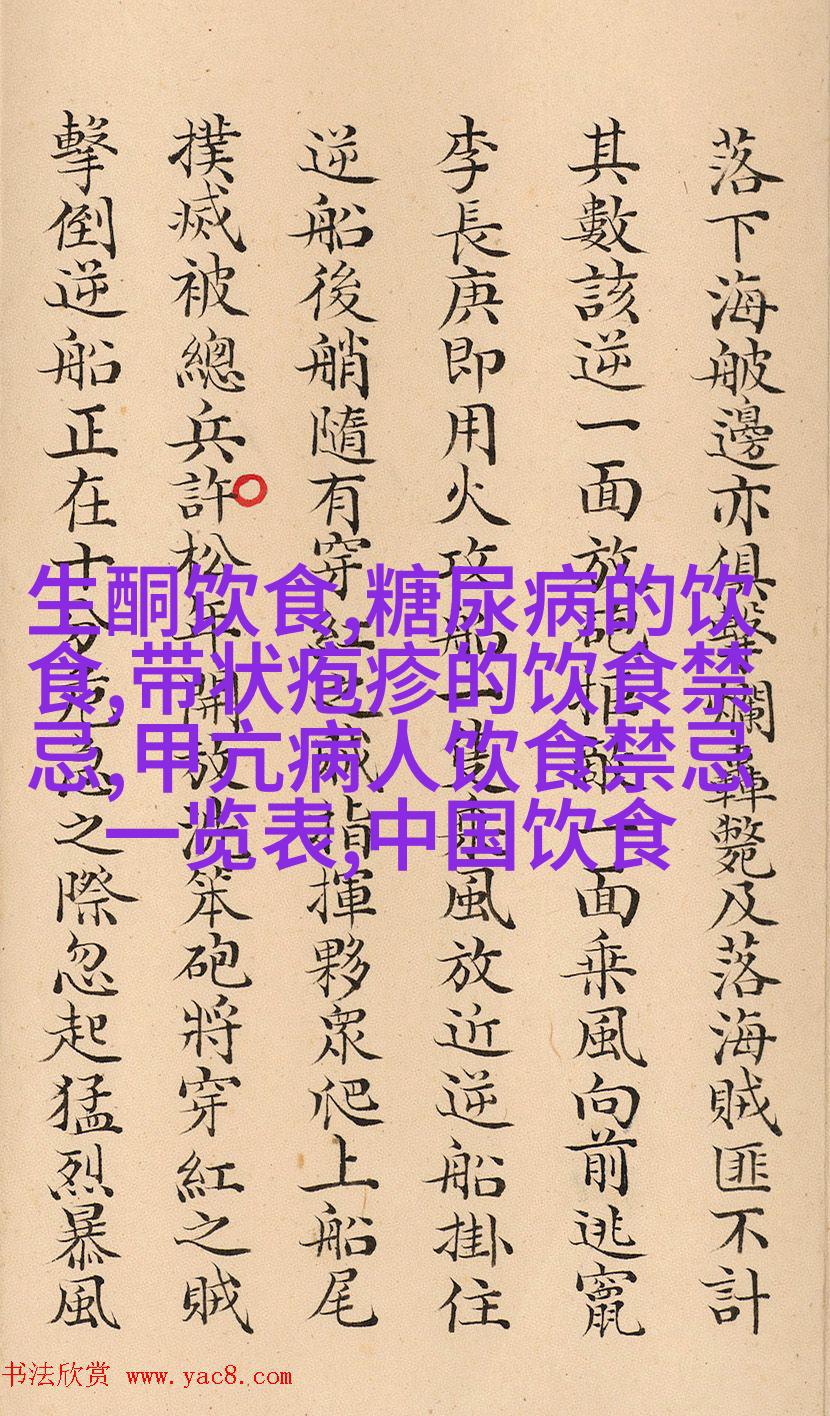 落下海舨邊亦俱擊爛轟斃及落海賊匪不計
其數該逆一面放砲拒敵一面乘風向前逃竄
李長庚即用火攻船一隻乘風放近逆船掛住
逆船後艄隨有穿紅之賊指揮夥眾爬上船尾
撲滅被總兵許松年開放洗笨砲將穿紅之賊
擊倒逆船正在十分危急之際忽起猛烈暴風
生酮饮食,糖尿病的饮
食,带状疱疹的饮食禁
忌,甲亢病人饮食禁忌
一览表,中国饮食
书法欣赏 www.yac8.com